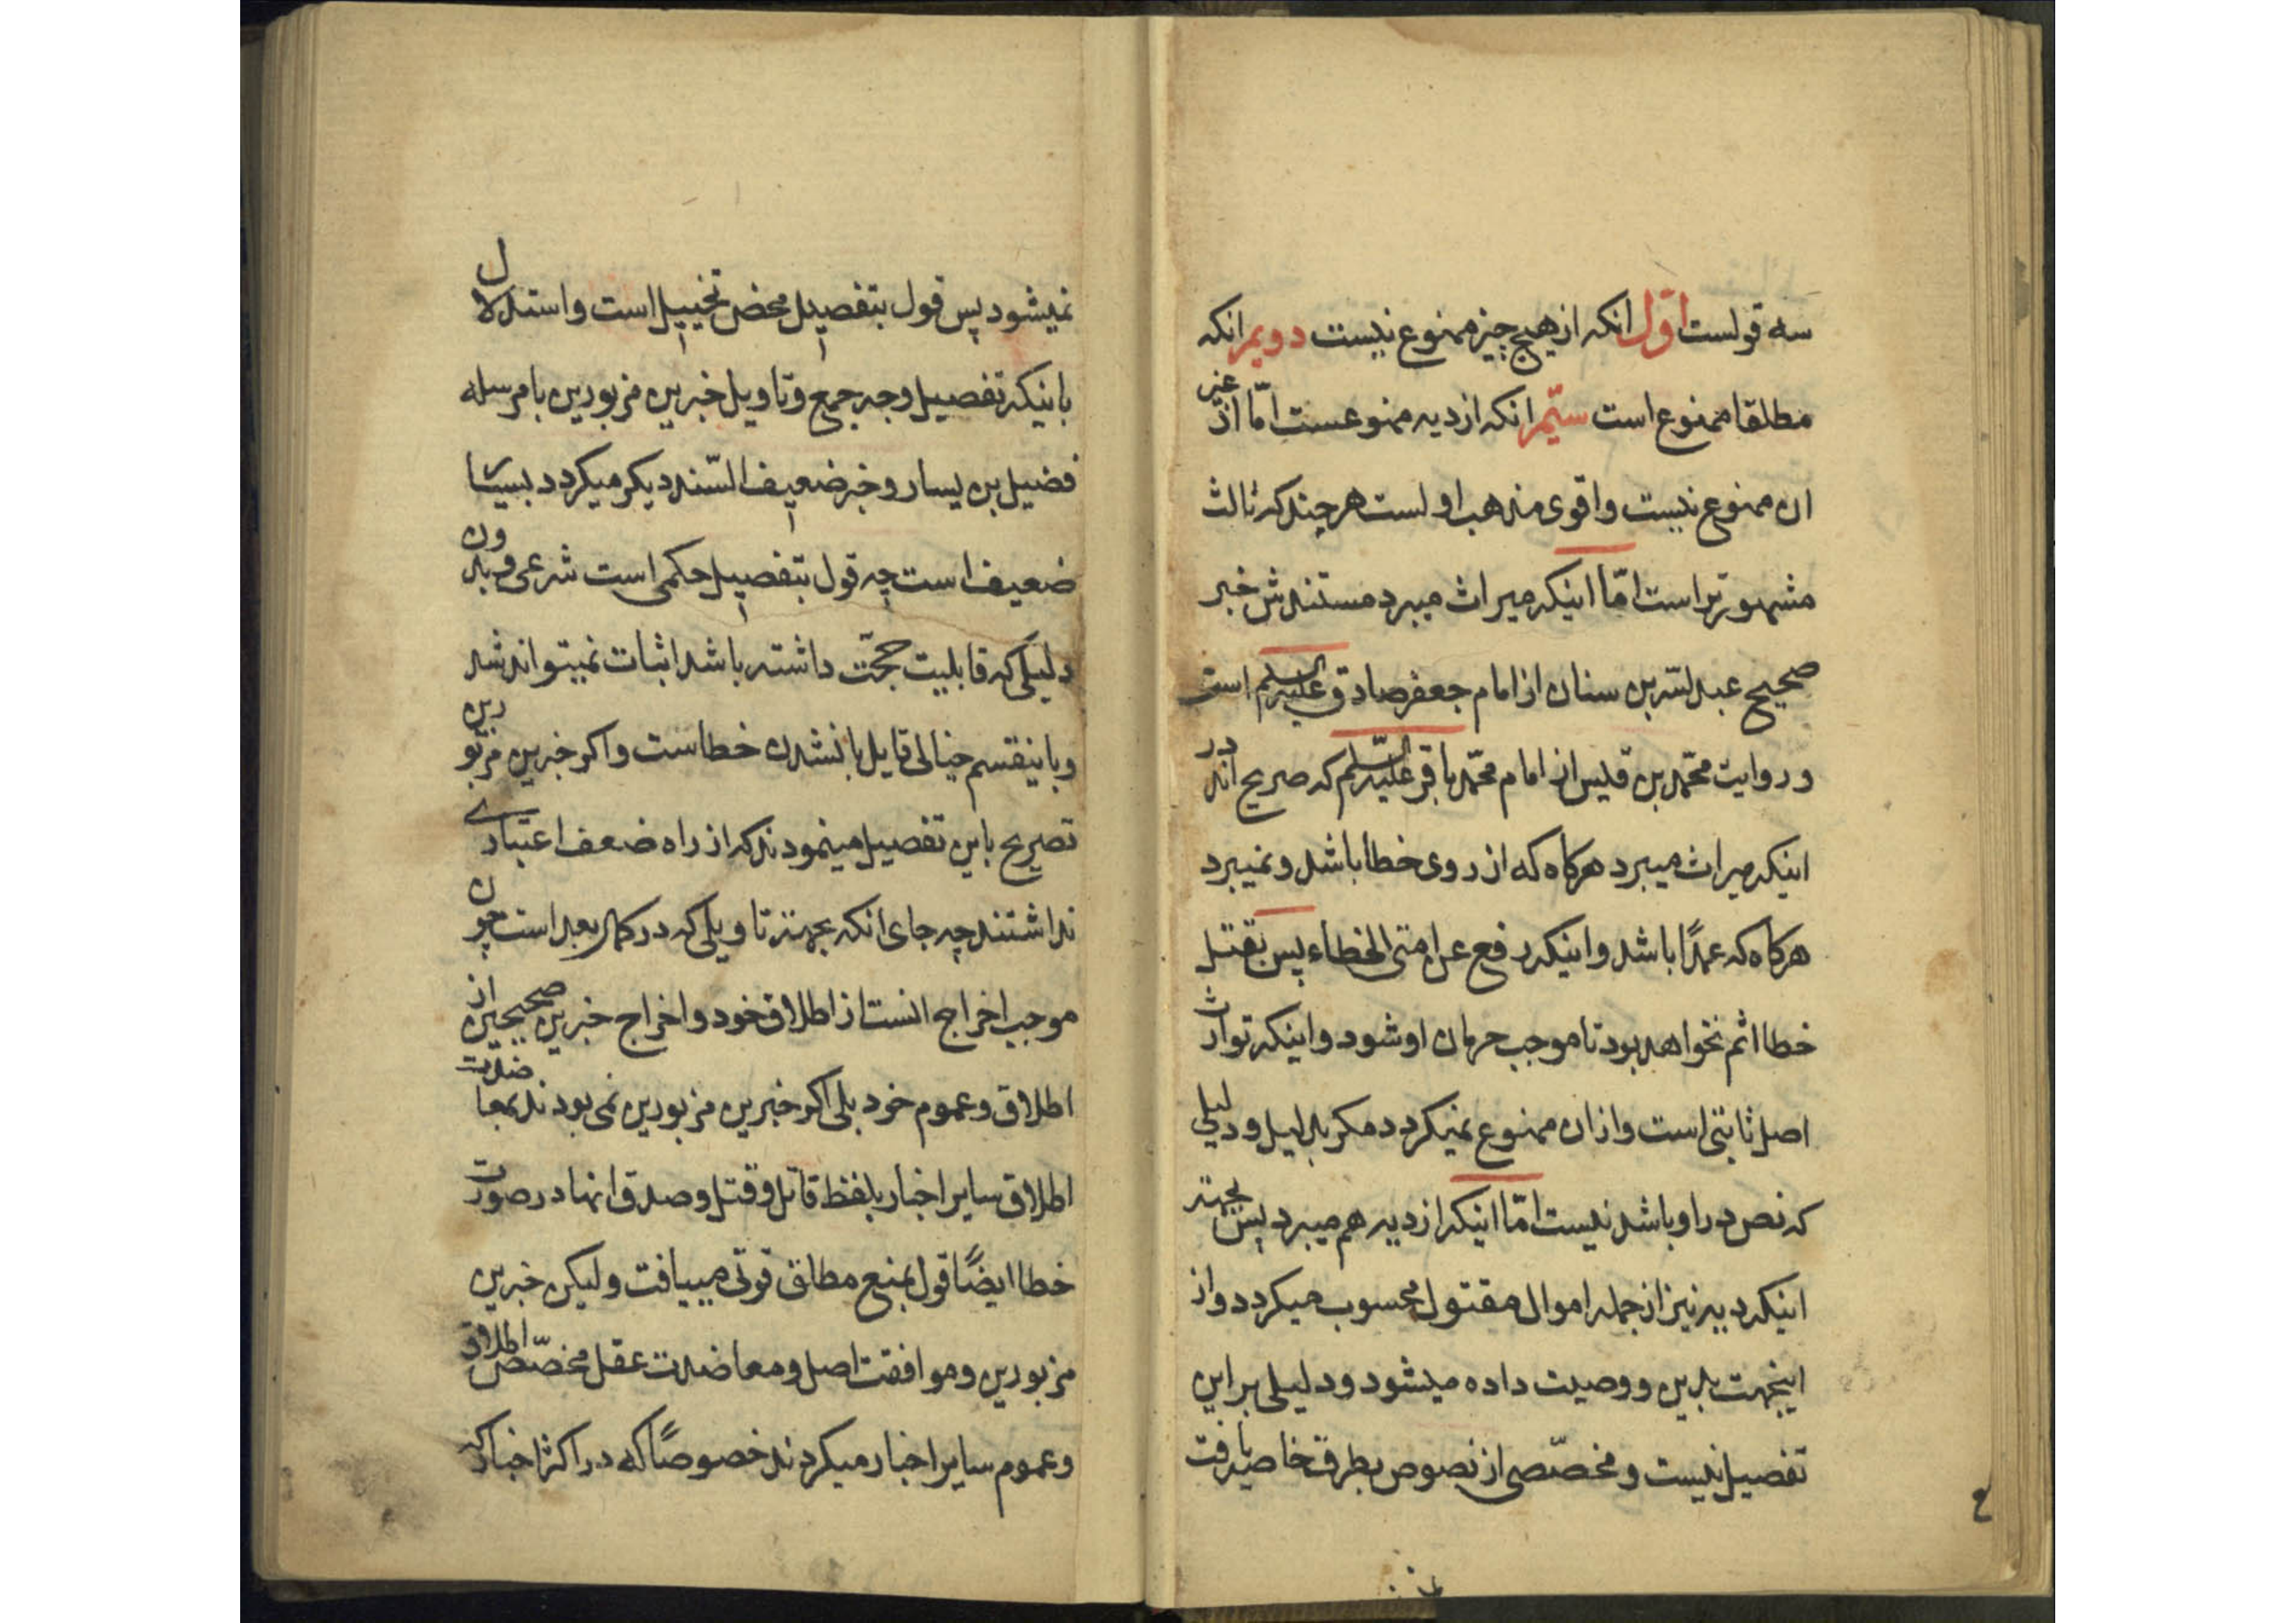 سه قولست اوّل انکه از هیچ چیز ممنوع نیست دویم انکه
مطلقا ممنوع است سیّم انکه از دیه ممنوعست امّا از غیر
ان ممنوع نیست و اقوی مذهب اولست هر چند که ثالث
مشهورتر است امّا اینکه میراث میبرد مستندش خبر
صحیح عبدالله بن سنان از امام جعفر صادق علیه السلم است
و روایت محمّد بن قیس از امام محمّد باقر علیه السّلم که صریح اند در
اینکه میراث میبرد هرکاه که از روی خطا باشد و نمیبرد
هرکاه که عمدًا باشد و اینکه رفع عن امتی الخطاء پس بقتل
خطا اثم نخواهد بود تا موجب حرمان او شود و اینکه توارث
اصل ثابتی است و از ان ممنوع نمیکردد مکر بدلیل و دلیلی
که نص در او باشد نیست امّا اینکه از دیه هم میبرد پس بجهته
اینکه دیه نیز از جمله اموال مقتول محسوب میکردد و از
اینجهت بدین و وصیت داده میشود و دلیلی بر این
تفصیل نیست و مخصّصی از نصوص بطرق خاصه یافت
نمیشود پس قول بتفصیل محض تخییل است و استدلال
باینکه تفصیل وجه جمع و تاویل خبرین مزبورین با مرسله
فضیل بن یسار و خبر ضعیف السّند دیکر میکردد بسیار
ضعیف است چه قول بتفصیل حکمی است شرعی و بدون
دلیلی که قابلیت حجّت داشته باشد اثبات نمیتواند شد
و باینقسم خیالی قایل بانشدن خطاست و اکر خبرین مزبورین
تصریح باین تفصیل مینمودند که از راه ضعف اعتباری
نداشتند چه جای انکه بجهته تاویلی که در کمال بعد است چون
موجب اخراج انست از اطلاق خود و اخراج خبرین صحیحین از
اطلاق و عموم خود بلی اکر خبرین مزبورین نمی بودند بمعاضدت
اطلاق سایر اخبار بلفظ قاتل و قتل و صدق انها در صورت
خطا ایضًا قول بمنع مطلق قوتی مییافت و لیکن خبرین
مزبورین و موافقت اصل و معاضدت عقل مخصّص اطلاق
و عموم سایر اخبار میکردند خصوصًا که در اکثر اخبار که